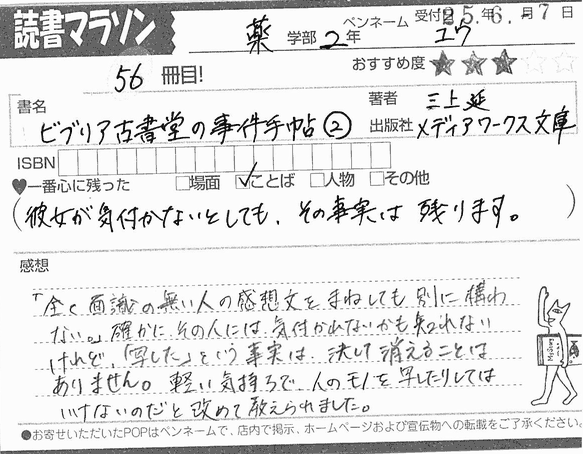 読書マラソン
受付25年6.月7日
薬 学部 2年 ペンネーム ユウ
56 冊目! おすすめ度 ★★★☆☆
書名 ビブリア古書堂の事件手帖② 著者 三上延
出版社 メディアワークス文庫
ISBN
♥一番心に残った □場面 ☑ことば □人物 □その他
(彼女が気付かないとしても、その事実は残ります。)
感想
「全く面識の無い人の感想文をまねしても別に構わ
ない。」確かに、その人には気付かれないかも知れない
けれど、「写した」という事実は、決して消えることは
ありません。軽い気持ちで、人のモノを写したりしては
いけないのだと改めて教えられました。
●お寄せいただいたPOPはペンネームで、店内で掲示、ホームページおよび宣伝物への転載をご了承ください。